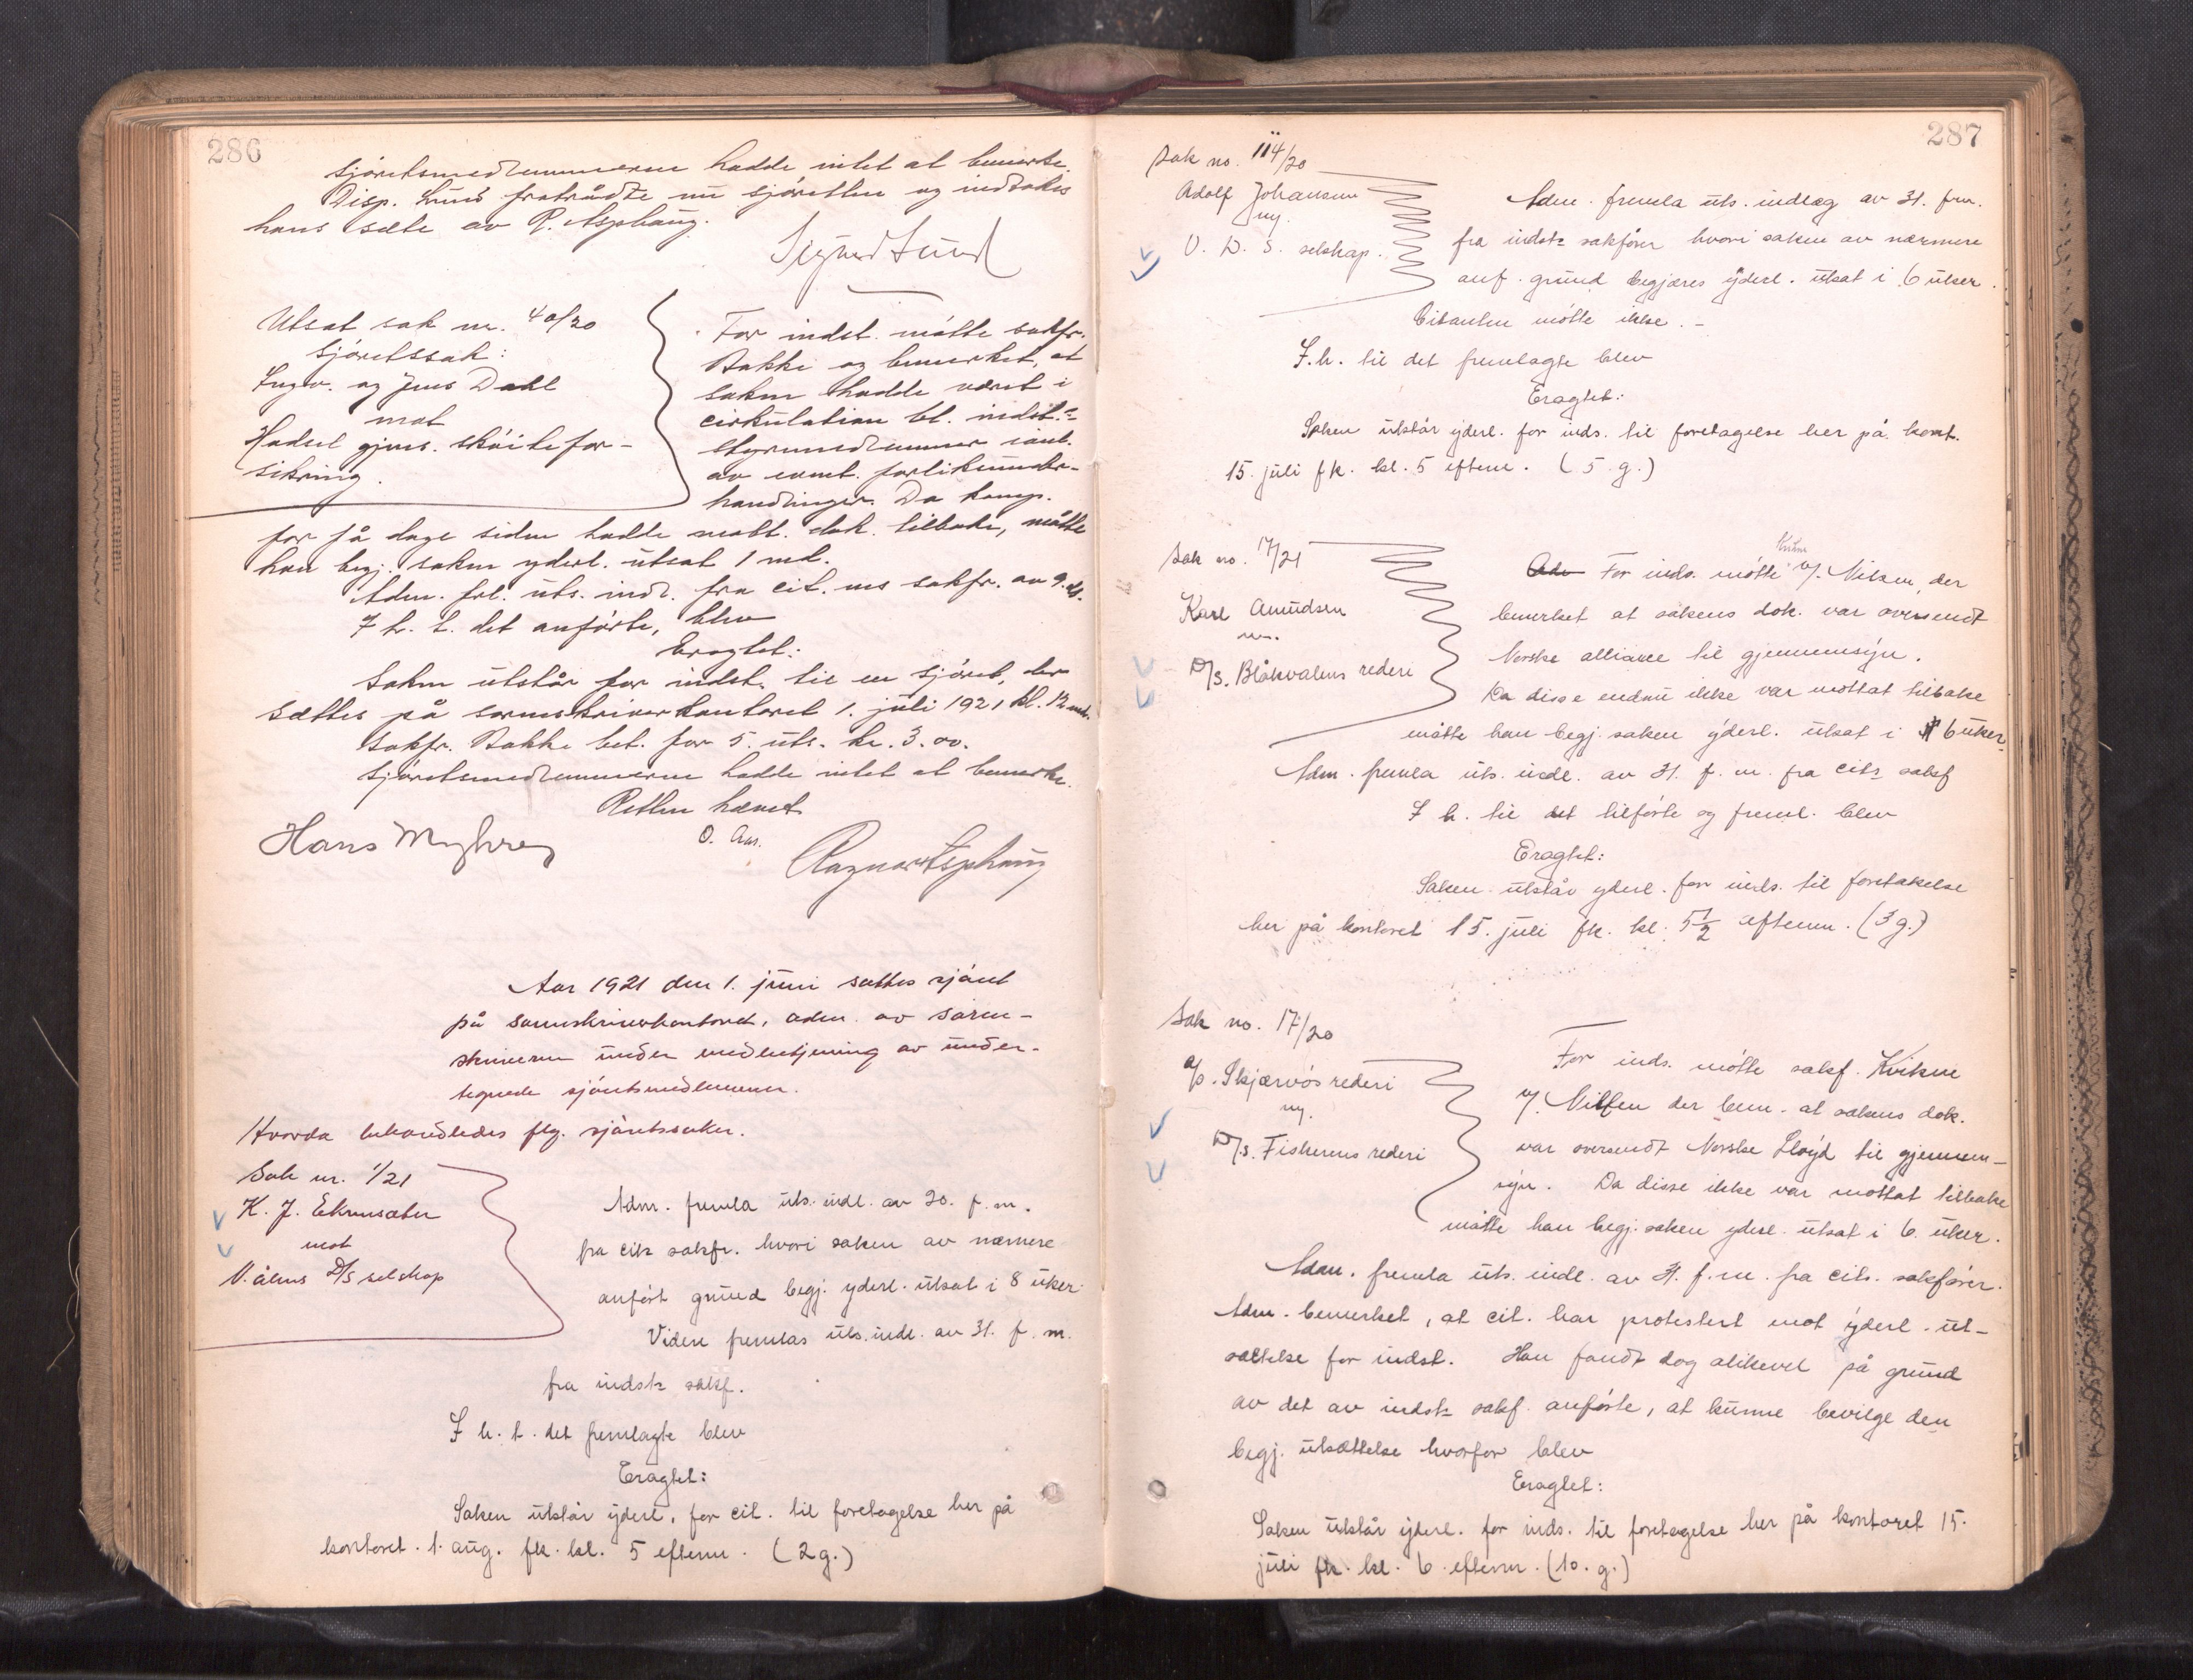 286
sjøretsmedlemmerne hadde intet at bemerke.
Disp. Lund fratrådte nu sjøretten og indtokes
hans sæte av R. Asphaug.
Sigurd Lund
Utsat sak nr. 40/20
Sjøretssak:
Ingv. og Jens Dahl
mot
Hadsel gjens. skøitefor-
sikring.
For indst. møtte sakfr.
Bakke og bemerket, at
saken hadde været i
cirkulation bl. indst.s
styremedlemmer ianl.
av event. forliksunder-
handlinger. Da komp.
for få dage siden hadde mott. dok. tilbake, måtte
han begj. saken yderl. utsat 1 md.
Adm. frl. uts. indl. fra cit. ms sakfr. av 9. ds.
I h. t. det anførte, blev
Eragtet:
Saken utstår for indst. til en sjøret, der
sættes på sorenskriverkontoret 1. juli 1921 kl. 12 md.
Sakfr. Bakke bet. for 5. uts. kr. 3.00.
Sjøretsmedlemmerne hadde intet at bemerke.
Retten hævet.
O. Aas.
Hans Myhre
Ragnar Asphaug
Aar 1921 den 1. juni sattes sjøret
på sorenskriverkontoret, adm. av soren-
skriveren under medbetjening av under-
tegnede sjøretsmedlemmer.
Hvorda behandledes flg. sjøretssaker.
Sak nr. 1/21
K. J. Ekrensæter
mot
V.ålens D/S selskap
Adm. fremla uts. indl. av 20. f. m.
fra cits sakfr. hvori saken av nærmere
anført grund begj. yderl. utsat i 8 uker.
Videre fremlas uts. indl. av 31. f. m.
fra indsts sakf.
I h. t. det fremlagte blev
Eragtet:
Saken utstår yderl. for cit. til foretagelse her på
kontoret 1. aug. fk. kl. 5 efterm. (2 g.)
287
Sak no. 114/20
Adolf Johansen
mg.
V. D. S. selskap.
Adm. fremla uts. indlæg av 31. fm.
fra indsts sakfører hvori saken av nærmere
anf. grund begjæres yderl. utsat i 6 uker.
Citanten møtte ikke. -
I.h. til det fremlagte blev
Eragtet:
Saken utstår yderl. for inds. til foretagelse her på kont.
15. juli fk. kl. 5 efterm. (5 g.)
Sak no. 17/21
Karl Amundsen
mg.
D/S. Blåkvalens rederi
Adv For inds. møtte v/. Nilsen, der
bemerket at sakens dok. var oversendt
Norske alliance til gjennemsyn.
Da disse endnu ikke var mottat tilbake
måtte han begj. saken yderl. utsat i 6 uker.
Adm. fremla uts. indl. av 31. f. m. fra cits sakf
I h. til det tilførte og freml. blev
Eragtet:
Saken utstår yderl. for inds. til foretakelse
her på kontoret 15. juli fk. kl. 5 1/2 efterm. (3 g.)
Sak no. 17/20
A/S. Skjærvøs rederi
mg.
D/S. Fiskerens rederi
For inds. møtte sakf. Kvikne
v/. Nilsen der bem. at sakens dok.
var oversendt Norske Lloyd til gjennem-
syn. Da disse ikke var mottat tilbake
måtte han begj. saken yderl. utsat i 6. uker.
Adm. fremla uts. indl. av 31. f. m. fra cits. sakfører.
Adm. bemerket, at cit. har protestert mot yderl. ut-
sættelse for indst. Han fandt dog alikevel på grund
av det av indsts sakf. anførte, at kunne bevilge den
begj. utsættelse hvorfor blev
Eragtet:
Saken utstår yderl. for inds. til foretagelse her på kontoret 15.
juli fk. kl. 6 efterm. (10. g.)